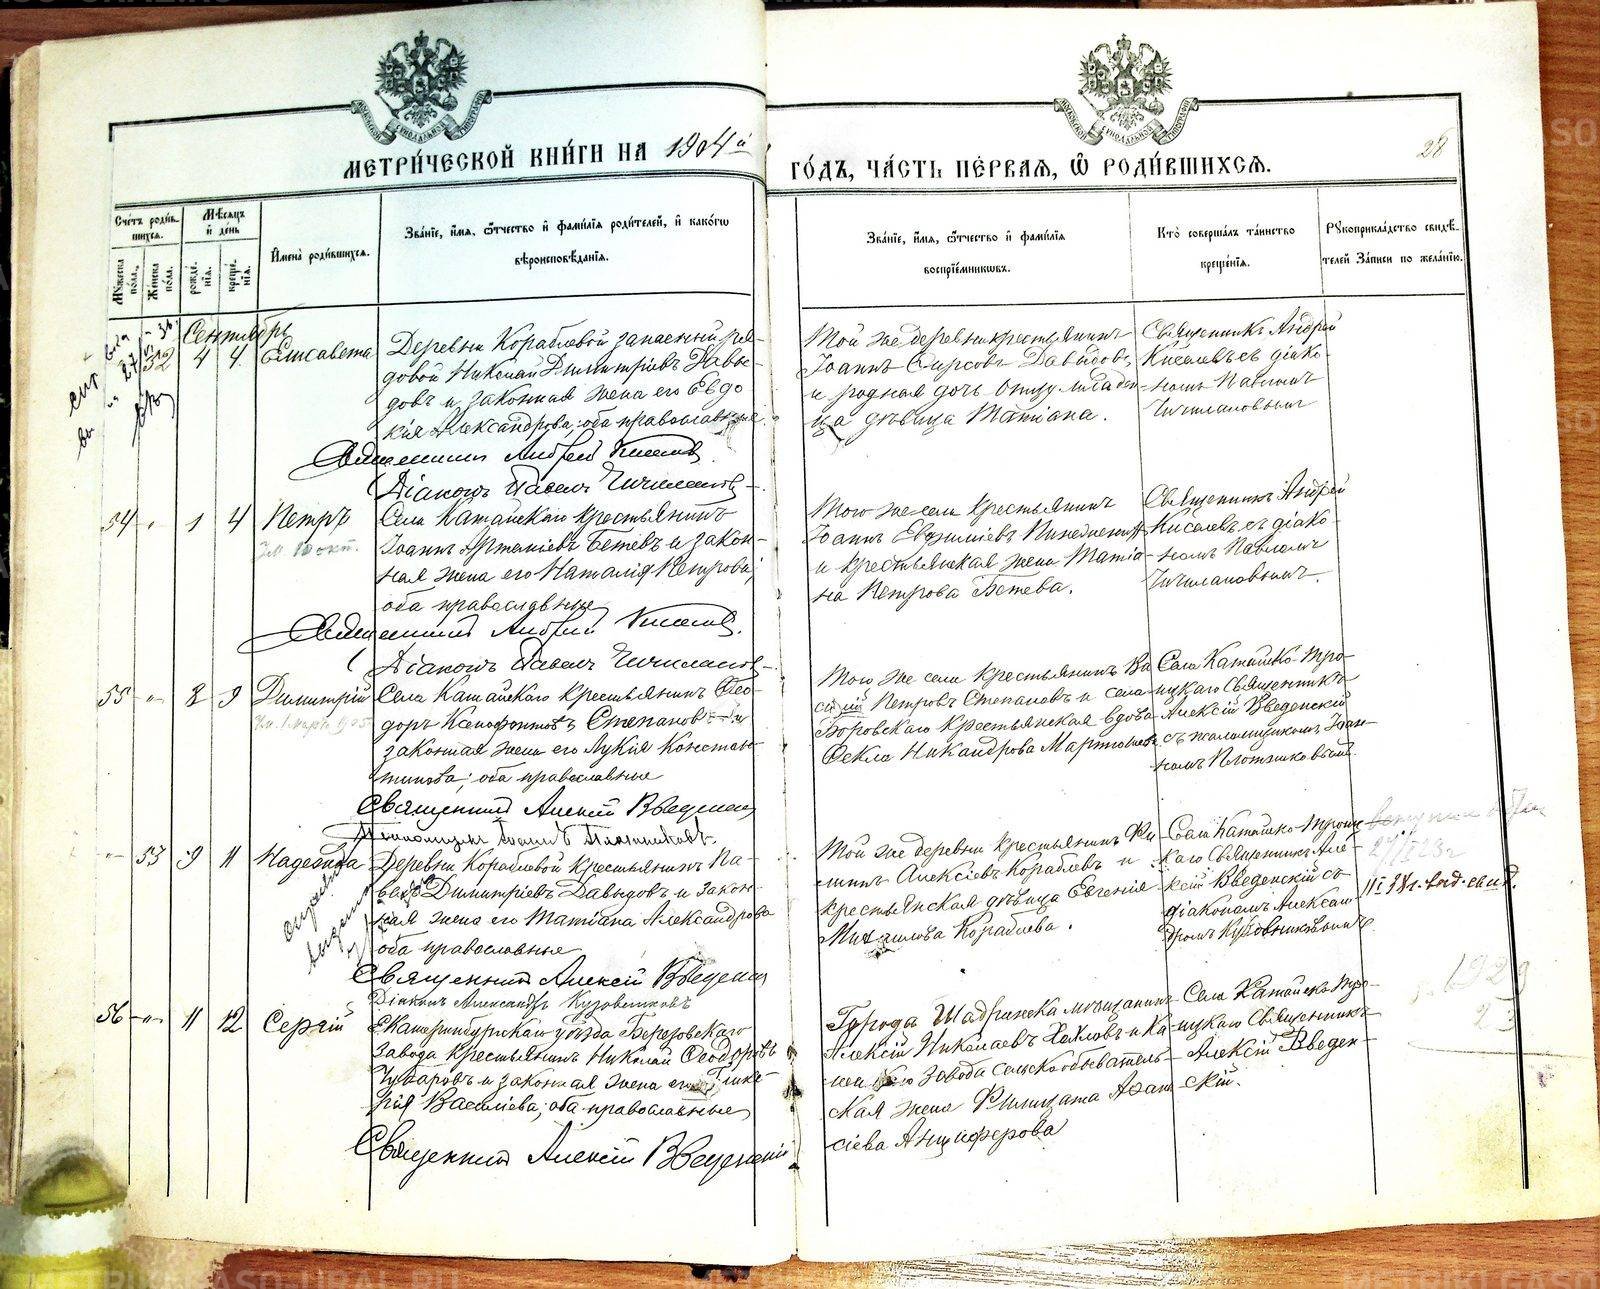 МЕТРИ́ЧЕСКОЙ КНИ́ГИ НА 1904й
ГО́ДЪ, ЧА́СТЬ ПЕ́РВАЯ, Ѡ҆ РОДИ́ВШИХСЯ.
28
Сче́тъ роди́в-
шихся.
Му́жеска по́ла.
Же́нска по́ла.
Мѣ́сяцъ
и҆ де́нь
рожде́-
нїя.
креще́-
нїя.
И҆мена̀ роди́вшихся.
Зва́нїе, и҆́мя, ѻ҆́тчество и҆ фами́лїя роди́телей, и҆ како́гѡ
вѣроисповѣ́данїя.
Зва́нїе, и҆́мя, ѻ҆́тчество и҆ фами́лїя
воспрїе́мникѡвъ.
Кто̀ соверша́лъ та́инство
креще́нїя.
Рꙋкоприкла́дство свидѣ́-
телей за́писи по жела́нїю.
Сентябрь
32 4 4 Елисавета
Деревни Кораблевой запасный ря-
довой Николай Димитріевъ Давы-
довъ и законная жена его Евдо
кія Александрова; оба православные
Священникъ Андрей Киселевъ
Діаконъ Павелъ Чичиланов
Той же деревни крестьянинъ
Іоаннъ Сырсовъ Давыдовъ
и родная дочь отцу младен
ца дѣвица Татіана.
Священникъ Андрей
Киселевъ съ діако-
номъ Павломъ
Чичилановымъ
54 " 1 4 Петръ
Села Катайскаго крестьянинъ
Іоаннъ Артеміевъ Бетевъ и закон-
ная жена его Наталія Петрова;
оба православные
Священникъ Андрей Киселев.
Діаконъ Павелъ Чичиланов
Того же села крестьянинъ
Іоаннъ Евфиміевъ
и крестьянская жена Татіа-
на Петрова Бетева.
Священникъ Андрей
Киселевъ съ діако-
номъ Павломъ
Чичилановымъ.
55 " 8 9 Димитрій
Села Катайскаго крестьянинъ Ѳео-
доръ Ксенофонтовъ Степановъ и
законная жена его Лукія Констан-
тинова; оба православные
Священникъ Алексій Введенскій
Псаломщикъ Іоаннъ Плотниковъ.
Того же села крестьянинъ Ва
силій Петровъ Степановъ и села
Боровскаго крестьянская вдова
Ѳекла Никандрова
Села Катайско-Тро-
ицкаго Священникъ
Алексій Введенскій
съ псаломщикомъ Іоан-
номъ Плотниковымъ.
" 33 9 11 Надежда
Деревни Кораблевой крестьянинъ Па-
велъ Димитріевъ Давыдовъ и закон-
ная жена его Татіана Александрова
оба православные
Священникъ Алексій Введенскій
Діаконъ Александръ Кузовниковъ
Той же деревни крестьянинъ Фи
липпъ Алексіевъ Кораблевъ и
крестьянская дѣвица Евгенія
Михаилова Кораблева.
Села Катайско-Троиц
каго Священникъ Але-
ксій Введенскій съ
діакономъ Алексан
дромъ Кузовниковымъ.
выд. свид.
56 " 11 12 Сергій
Екатеринбургскаго уѣзда Березовскаго
завода крестьянинъ Николай Ѳеодоровъ
Чубаровъ и законная жена его Глике-
рія Василіева; оба православные
Священникъ Алексій Введенскій
Города Шадринска мѣщанинъ
Алексій Николаевъ Хахловъ и Ка-
завода сельскообыватель-
ская жена Филицата Афан
сіева Анциферова
Села Катайско-Тро-
ицкаго Священникъ
Алексій Введен-
скій.
1929
23